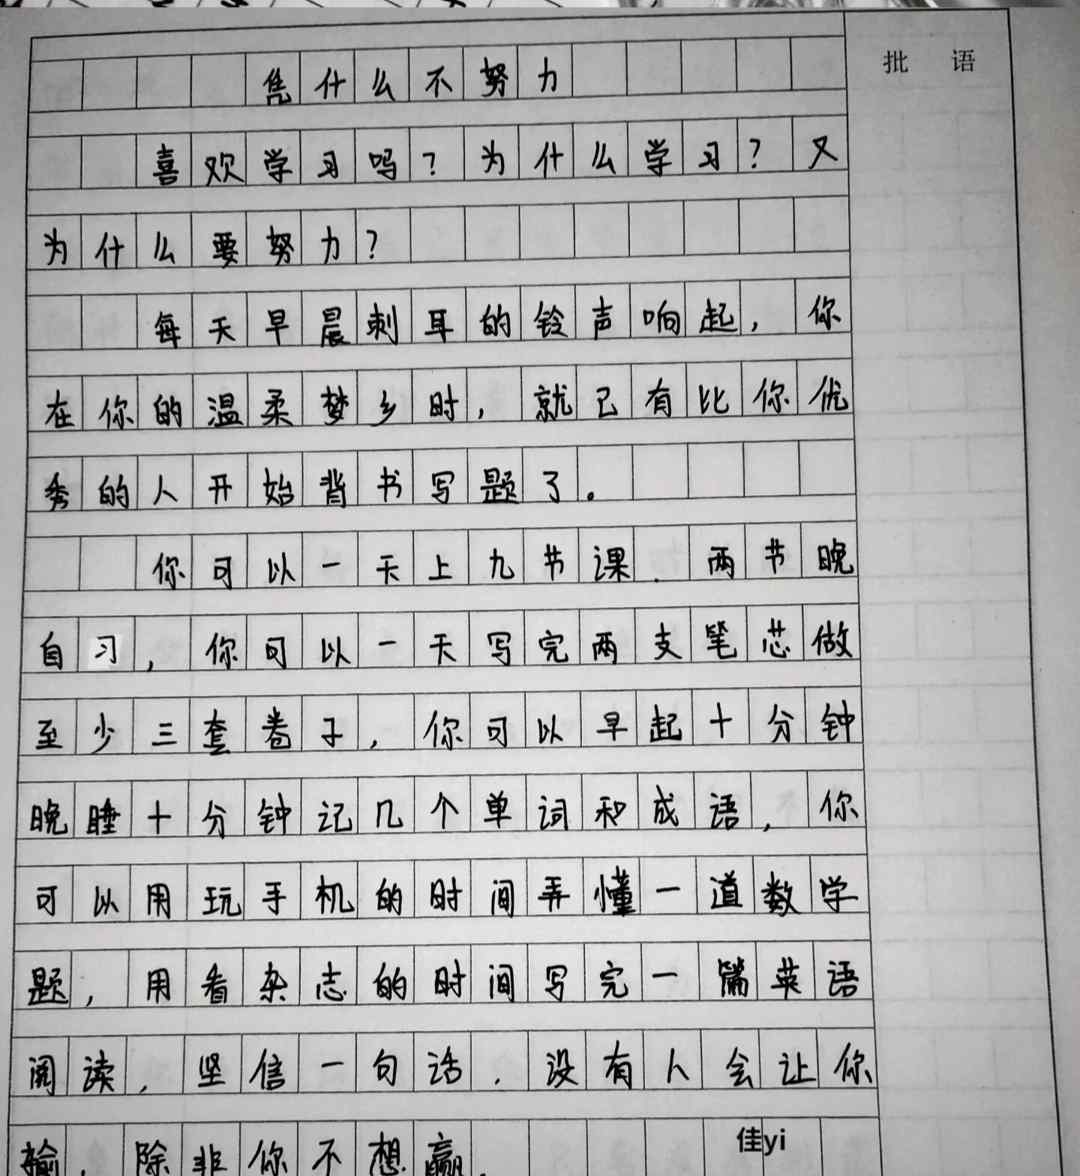 凭什么不努力
批 语
喜欢学习吗?为什么学习?又
为什么要努力?
每天早晨刺耳的铃声响起,你
在你的温柔梦乡时,就已有比你优
秀的人开始背书写题了。
你可以一天上九节课、两节晚
自习,你可以一天写完两支笔芯做
至少三套卷子,你可以早起十分钟
晚睡十分钟记几个单词和成语,你
可以用玩手机的时间弄懂一道数学
题,用看杂志的时间写完一篇英语
阅读,坚信一句话,没有人会让你
输,除非你不想赢.
佳yi